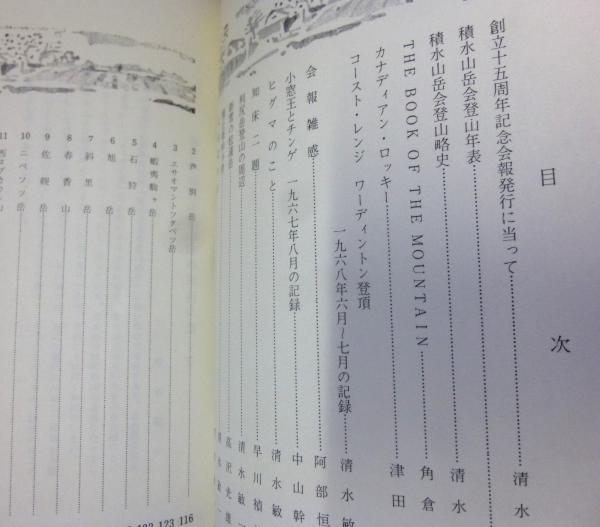 目次
創立十五周年記念会報発行に当って……清水
積水山岳会登山年表……清水
積水山岳会登山略史……角倉
THE BOOK OF THE MOUNTAIN
カナディアン・ロッキー……津田
コースト・レンジ ワーディントン登頂
一九六八年六月〜七月の記録……清水敏
会報雑感……阿部恒
小窓王とチンゲ 一九六七年八月の記録……中山幹
ヒグマのこと……清水敏
知床二題……早川禎
利尻岳登山の周辺……清水敏一
高沢光雄
2 芦別岳 116
3 エサオマントツタベツ岳 123
4 蝦夷駒ヶ岳
5 石狩岳
6 旭岳
7 斜里岳
8 春香山
9 佐幌岳
10 ニペソツ岳
11